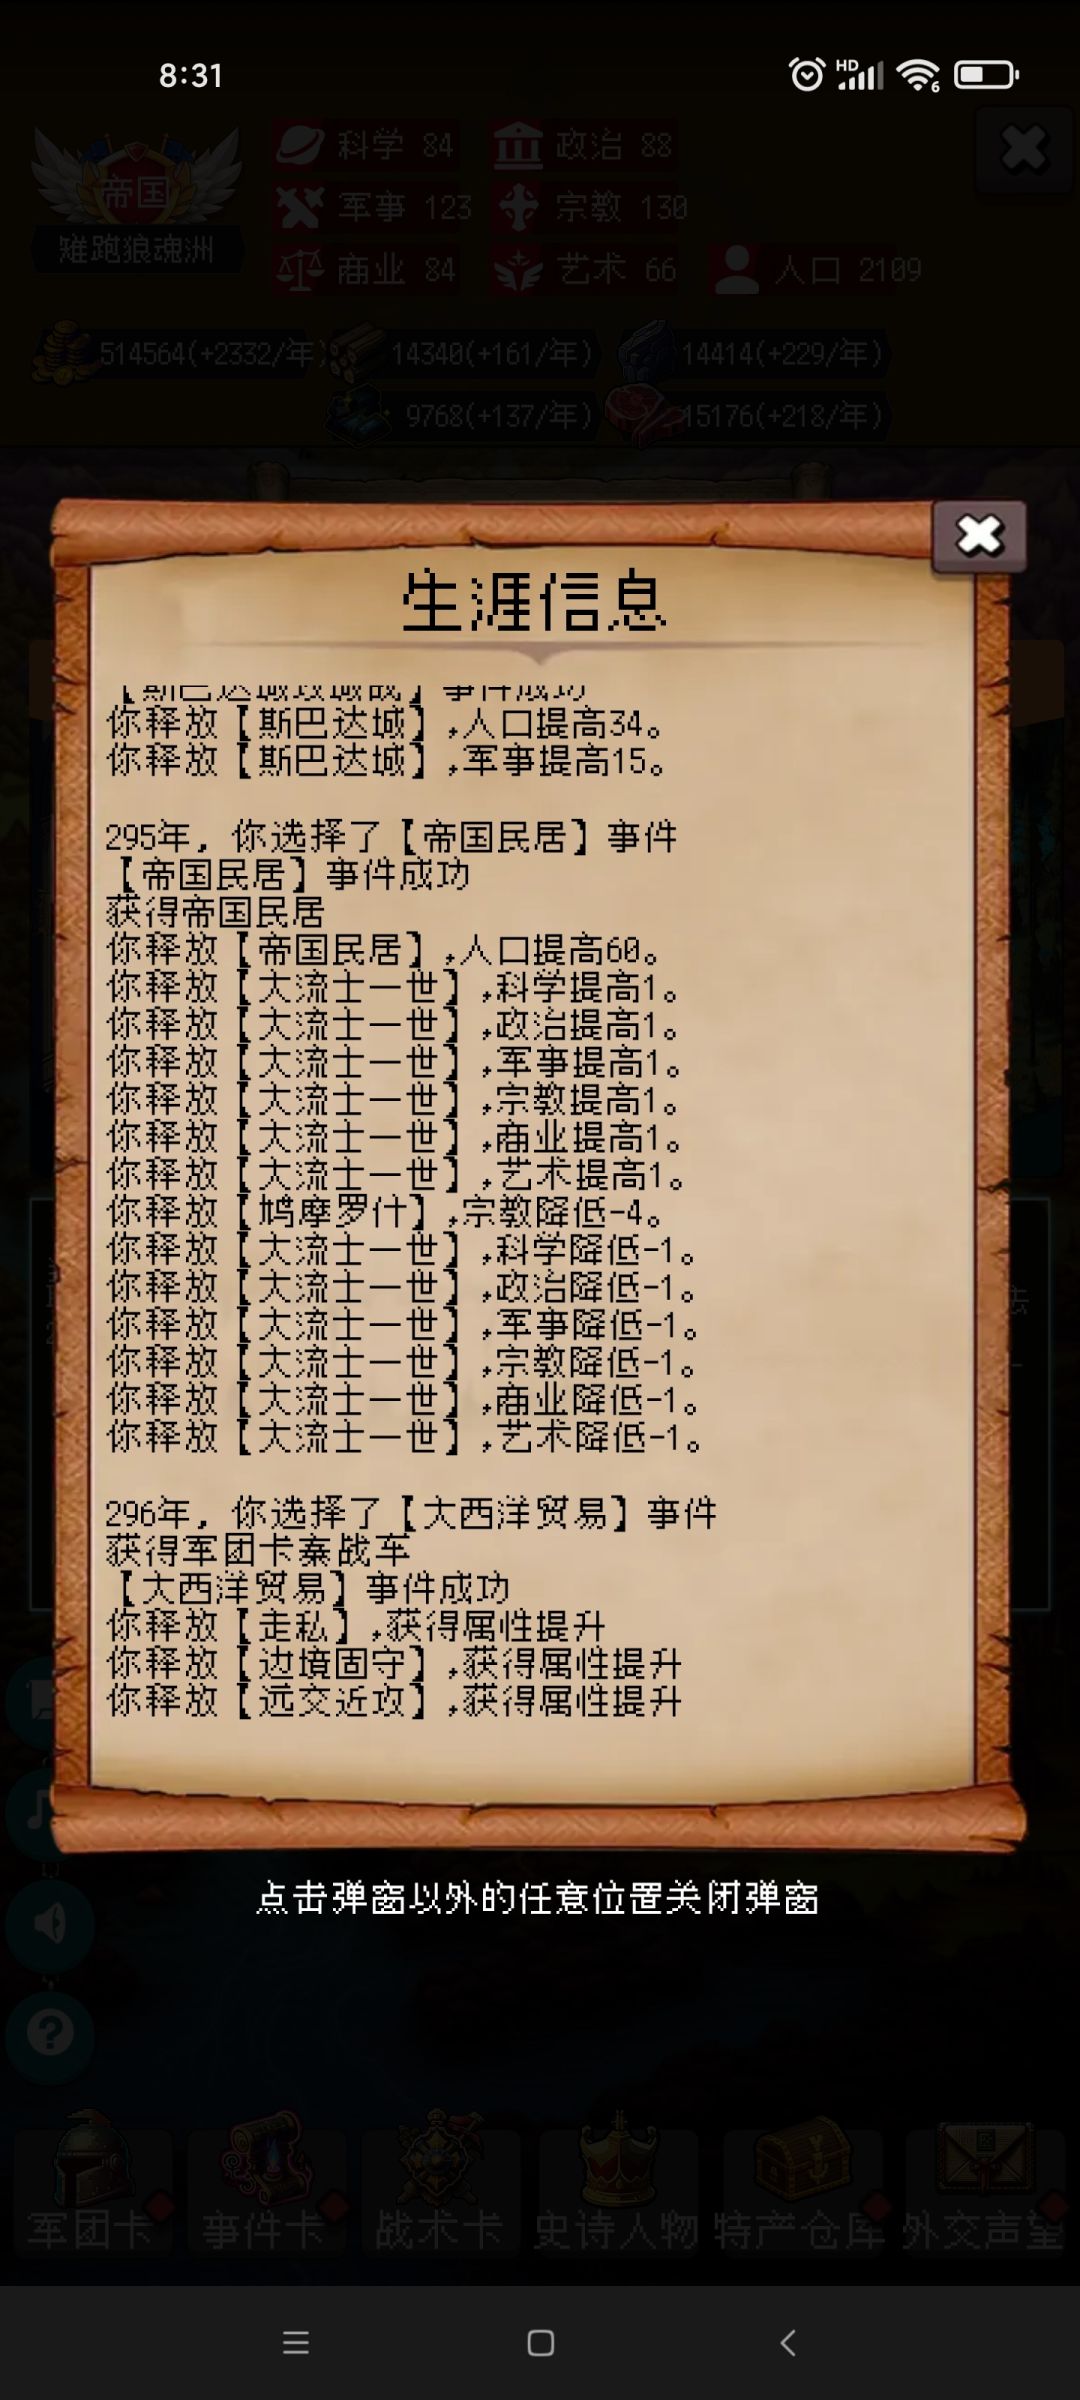 8:31
HD
6
帝国
雉跑狼魂洲
科学 84
政治 88
军事 123
宗教 130
商业 84
艺术 66
人口 2109
514564(+2332/年)
14340(+161/年)
14414(+229/年)
9768(+137/年)
15176(+218/年)
生涯信息
【斯巴达城攻城战】事件成功
你释放【斯巴达城】,人口提高34。
你释放【斯巴达城】,军事提高15。
295年, 你选择了【帝国民居】事件
【帝国民居】事件成功
获得帝国民居
你释放【帝国民居】,人口提高60。
你释放【大流士一世】,科学提高1。
你释放【大流士一世】,政治提高1。
你释放【大流士一世】,军事提高1。
你释放【大流士一世】,宗教提高1。
你释放【大流士一世】,商业提高1。
你释放【大流士一世】,艺术提高1。
你释放【鸠摩罗什】,宗教降低-4。
你释放【大流士一世】,科学降低-1。
你释放【大流士一世】,政治降低-1。
你释放【大流士一世】,军事降低-1。
你释放【大流士一世】,宗教降低-1。
你释放【大流士一世】,商业降低-1。
你释放【大流士一世】,艺术降低-1。
296年, 你选择了【大西洋贸易】事件
获得军团卡秦战车
【大西洋贸易】事件成功
你释放【走私】,获得属性提升
你释放【边境固守】,获得属性提升
你释放【远交近攻】,获得属性提升
点击弹窗以外的任意位置关闭弹窗
军团卡
事件卡
战术卡
史诗人物
特产仓库
外交声望